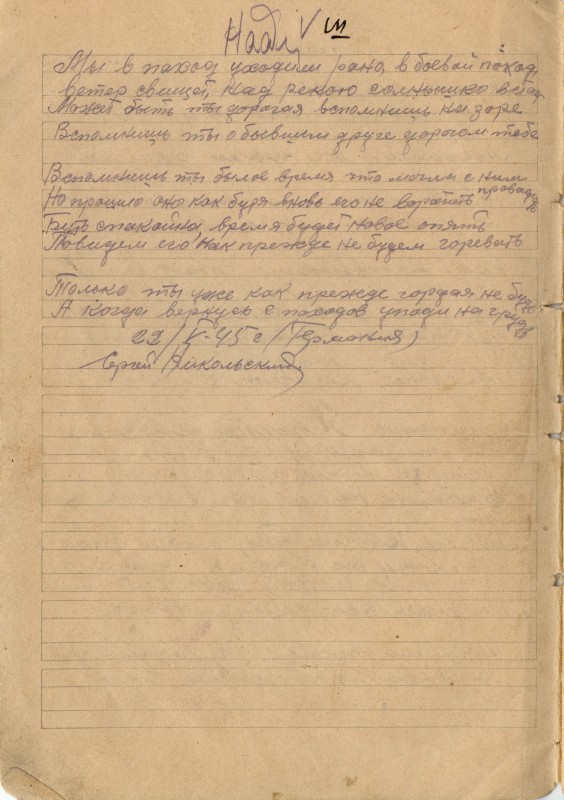 Наде V III
Мы в паход уходили рано, в боевой поход
ветер свищет над рекою солнышко встает
Может быть ты дорогая вспомнишь на заре
Вспомнишь ты о бывшим друге дорогом тебе
Вспомнишь ты былое время что могла с ним правадить
Но прошло оно как буря вновь его не воратить
Будь спакойна, время будет новое опять
Повидем его как прежде не будем горевать
Только ты уже как прежде гордая не будь
А когда вернусь с походов упади на грудь
22/V-45 г (Германия)
Сергей Никольский